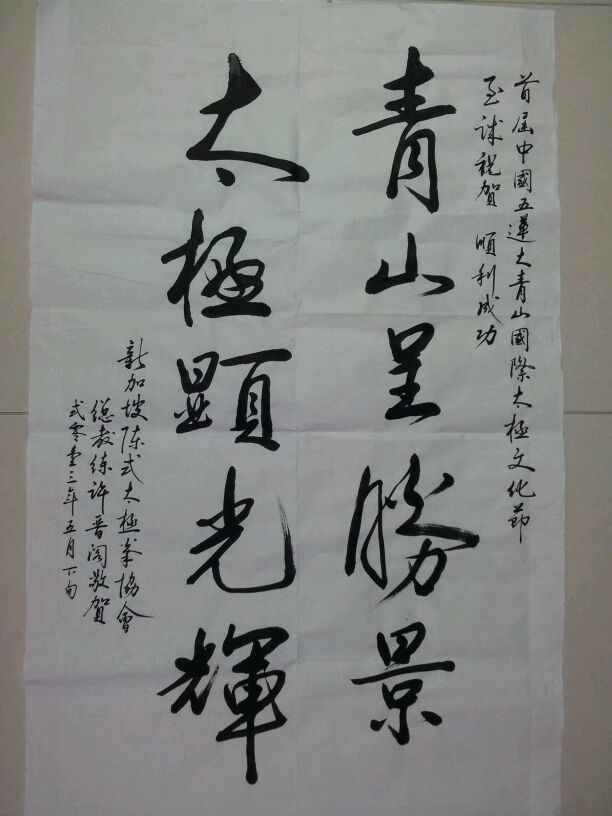 首届中國五蓮大青山國際太極文化節
至誠祝賀 順利成功
青山呈勝景
太極顕光輝
新加坡陈式太極拳協會
總教练許晋閣敬賀
弍零壹三年五月下旬